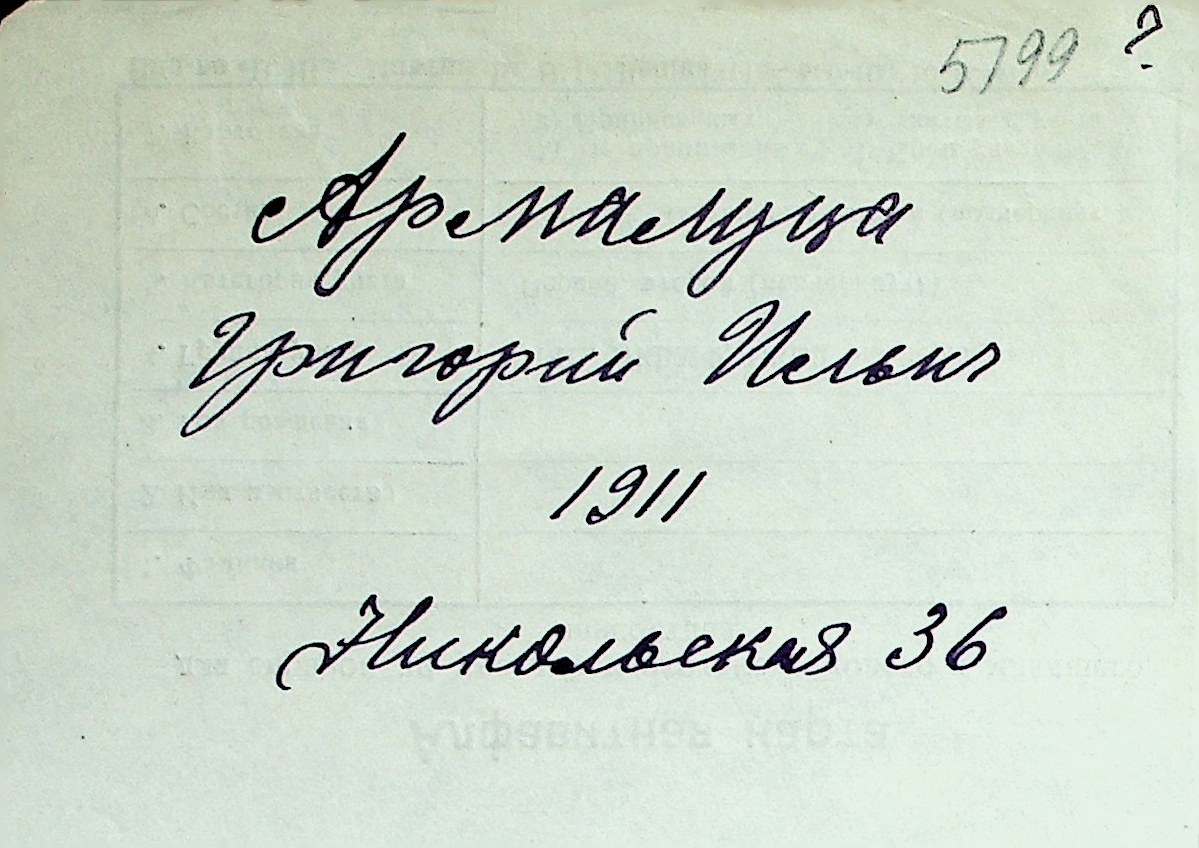 5799 ?
Армалуца
Григорий Ильич
1911
Никольская 36